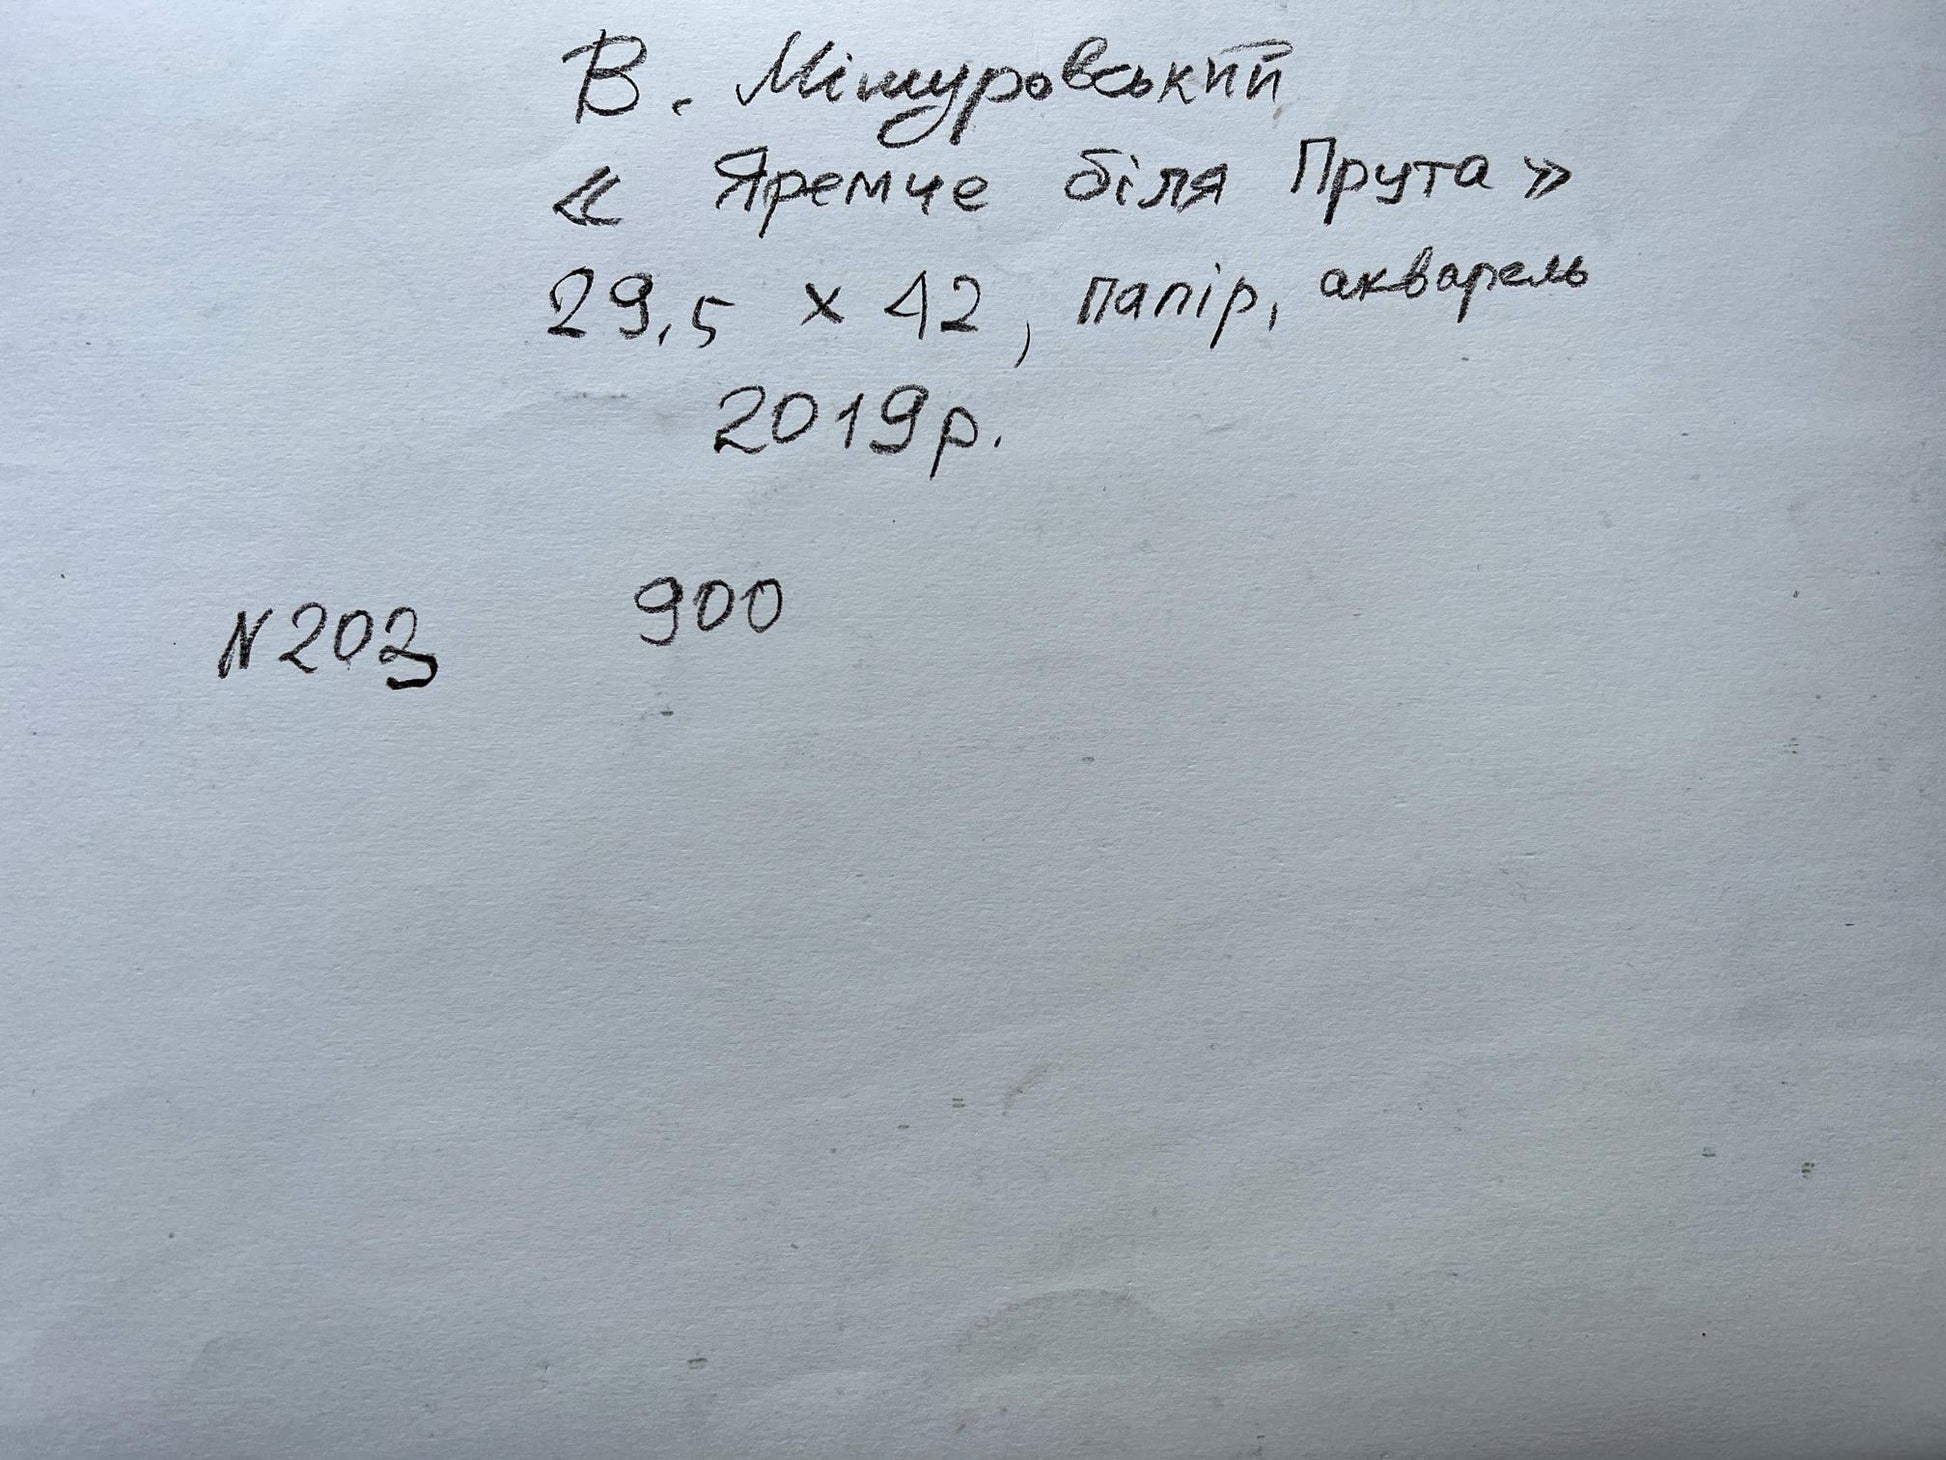 В. Мішуровський
« Яремче біля Прута »
29,5 х 42, папір, акварель
2019р.
900
N203